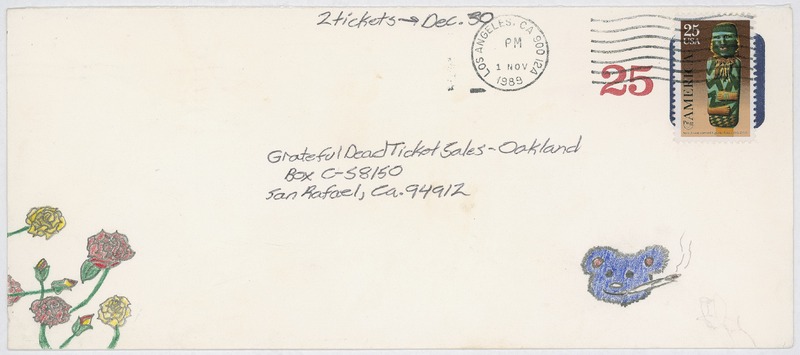 2 tickets → Dec. 30
LOS ANGELES, CA 900 12A
PM
1 NOV
1989
25
25
USA
AMERICA
Grateful Dead Ticket Sales - Oakland
Box C-S8150
San Rafael, Ca. 94912